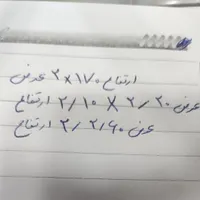 ارتفاع ۱۷۰ × ۲ عرض
عرض ۲/۲۰ × ۲/۱۰ ارتفاع
عرض ۲/۶۰ / ۲ ارتفاع